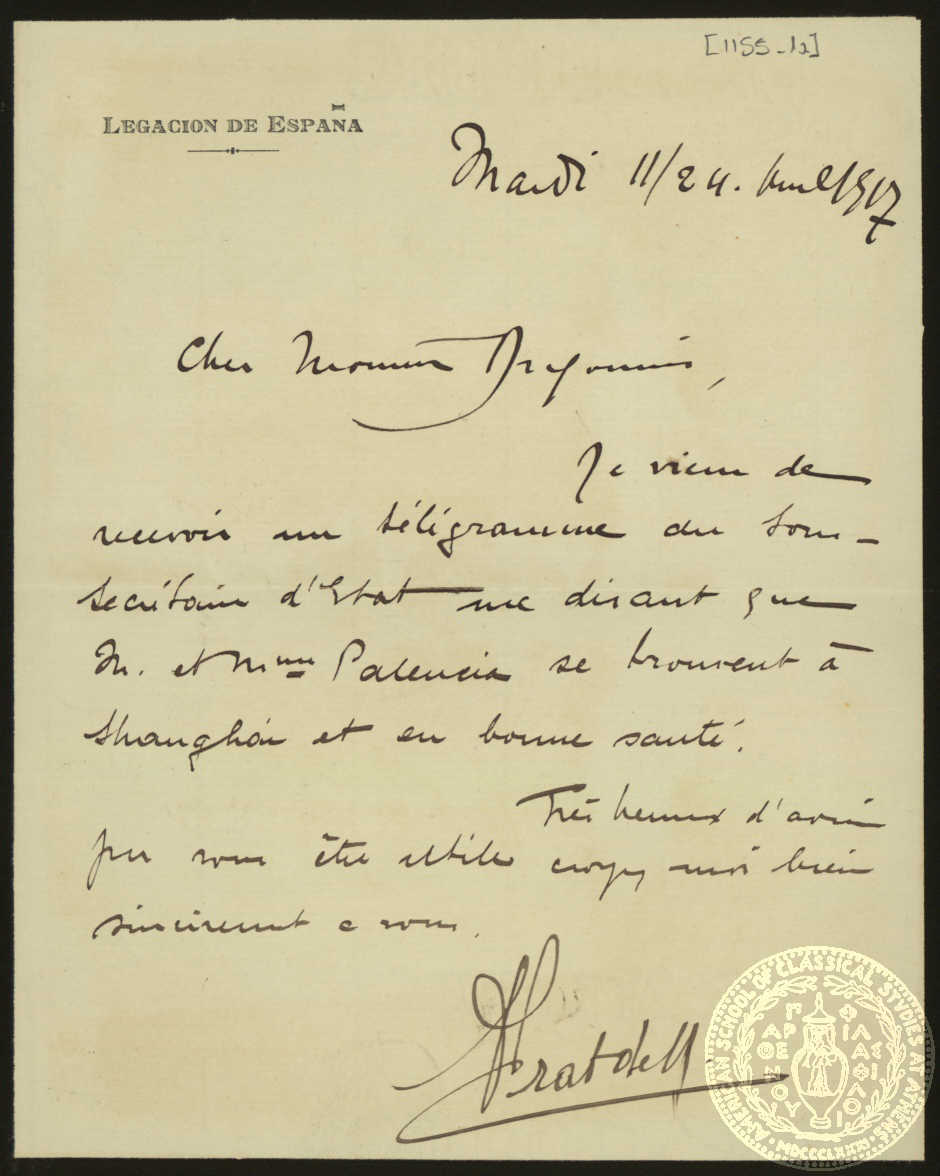 [1155-12]
LEGACION DE ESPAÑA
Mardi 11/24 Avril/917
Cher Monsieur Dragoumis,
Je viens de
recevoir un télégramme du Sous-
secrétaire d'Etat me disant que
M. et Mme Palencia se trouvent à
Shanghái et en bonne santé.
Très heureux d'avoir
pu vous être utile croyez moi bien
sincèrement a vous.
AMERICAN SCHOOL OF CLASSICAL STUDIES AT ATHENS
ΠΑΡΘΕΝΟΥ ΦΙΛΑΣ ΦΙΛΟ
MDCCCLXXXI